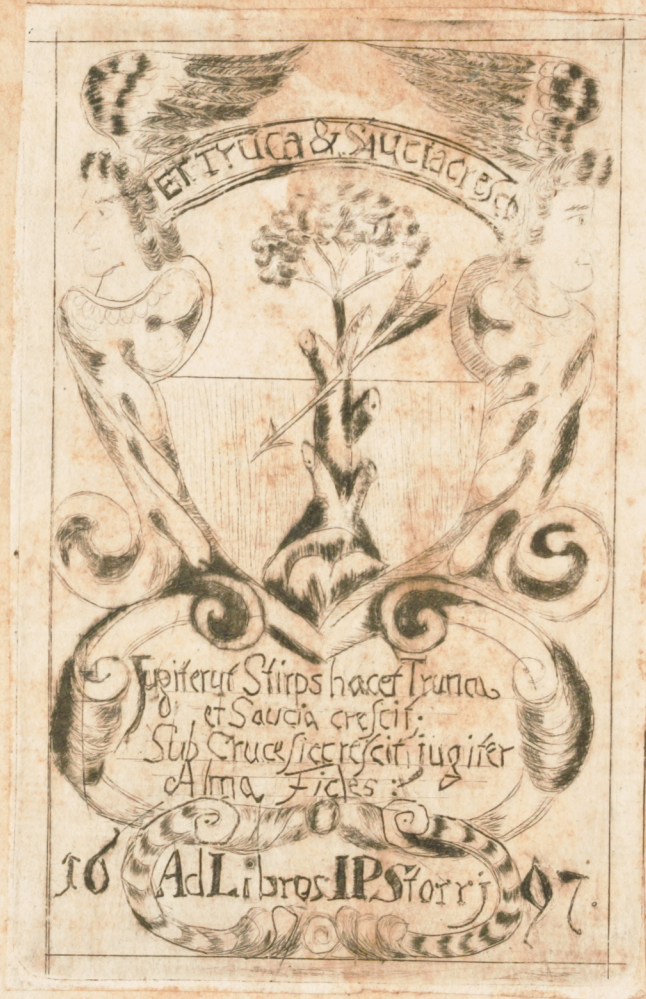 Et Truca & Siucia cresco
Jugiter ut Stirps hacet Trunca
et Saucia crescit;
Sub Cruce sic crescit, iugiter
Alma Fides:
16 Ad Libros IP Storrj 97.